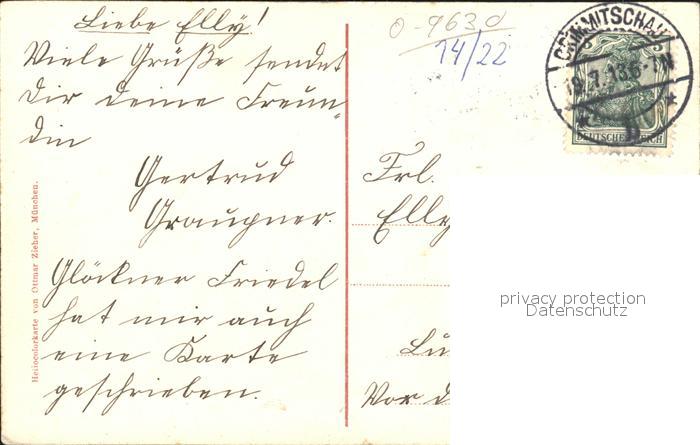 Liebe Elly!
Viele Grüße sendet
dir deine Freun-
din
Gertrud
Graupner.
Glöckner Friedel
hat mir auch
eine Karte
geschrieben.
Heliocolorkarte von Ottmar Zieher, München.
0-9630
14/22
CRIMMITSCHAU
19.7.13.6-7N
DEUTSCHES REICH
Frl.
Elly
privacy protection
Datenschutz
Vor d